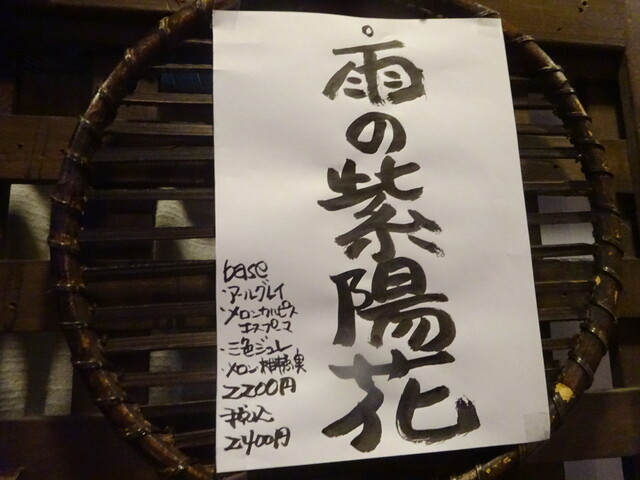 雨の紫陽花
base
・アールグレイ
・メロンカルピス
エスプーマ
・三色ジュレ
・メロン 果実
2200円
税込
2400円